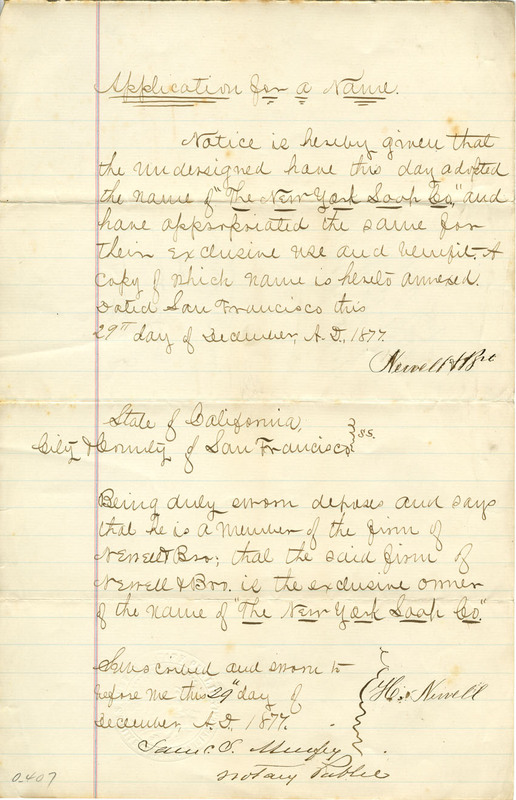 Application for a Name.
Notice is hereby given that
the undersigned have this day adopted
the name of "The New York Soap Co," and
have appropriated the same for
their exclusive use and benefit. A
copy of which name is hereto annexed.
Dated San Francisco this
29th day of December, A.D., 1877.
Newell & Bro
State of California,
City & County of San Francisco } ss.
Being duly sworn deposes and says
that he is a member of the firm of
Newell & Bro; that the said firm of
Newell & Bro. is the exclusive owner
of the name of "The New York Soap Co."
Subscribed and sworn to
before me this 29th day of
December A.D., 1877.
H. Newell
Notary Public
0.407